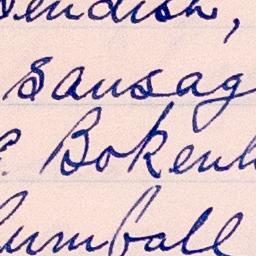 sendish,
sausag
. Bokenh
lumball